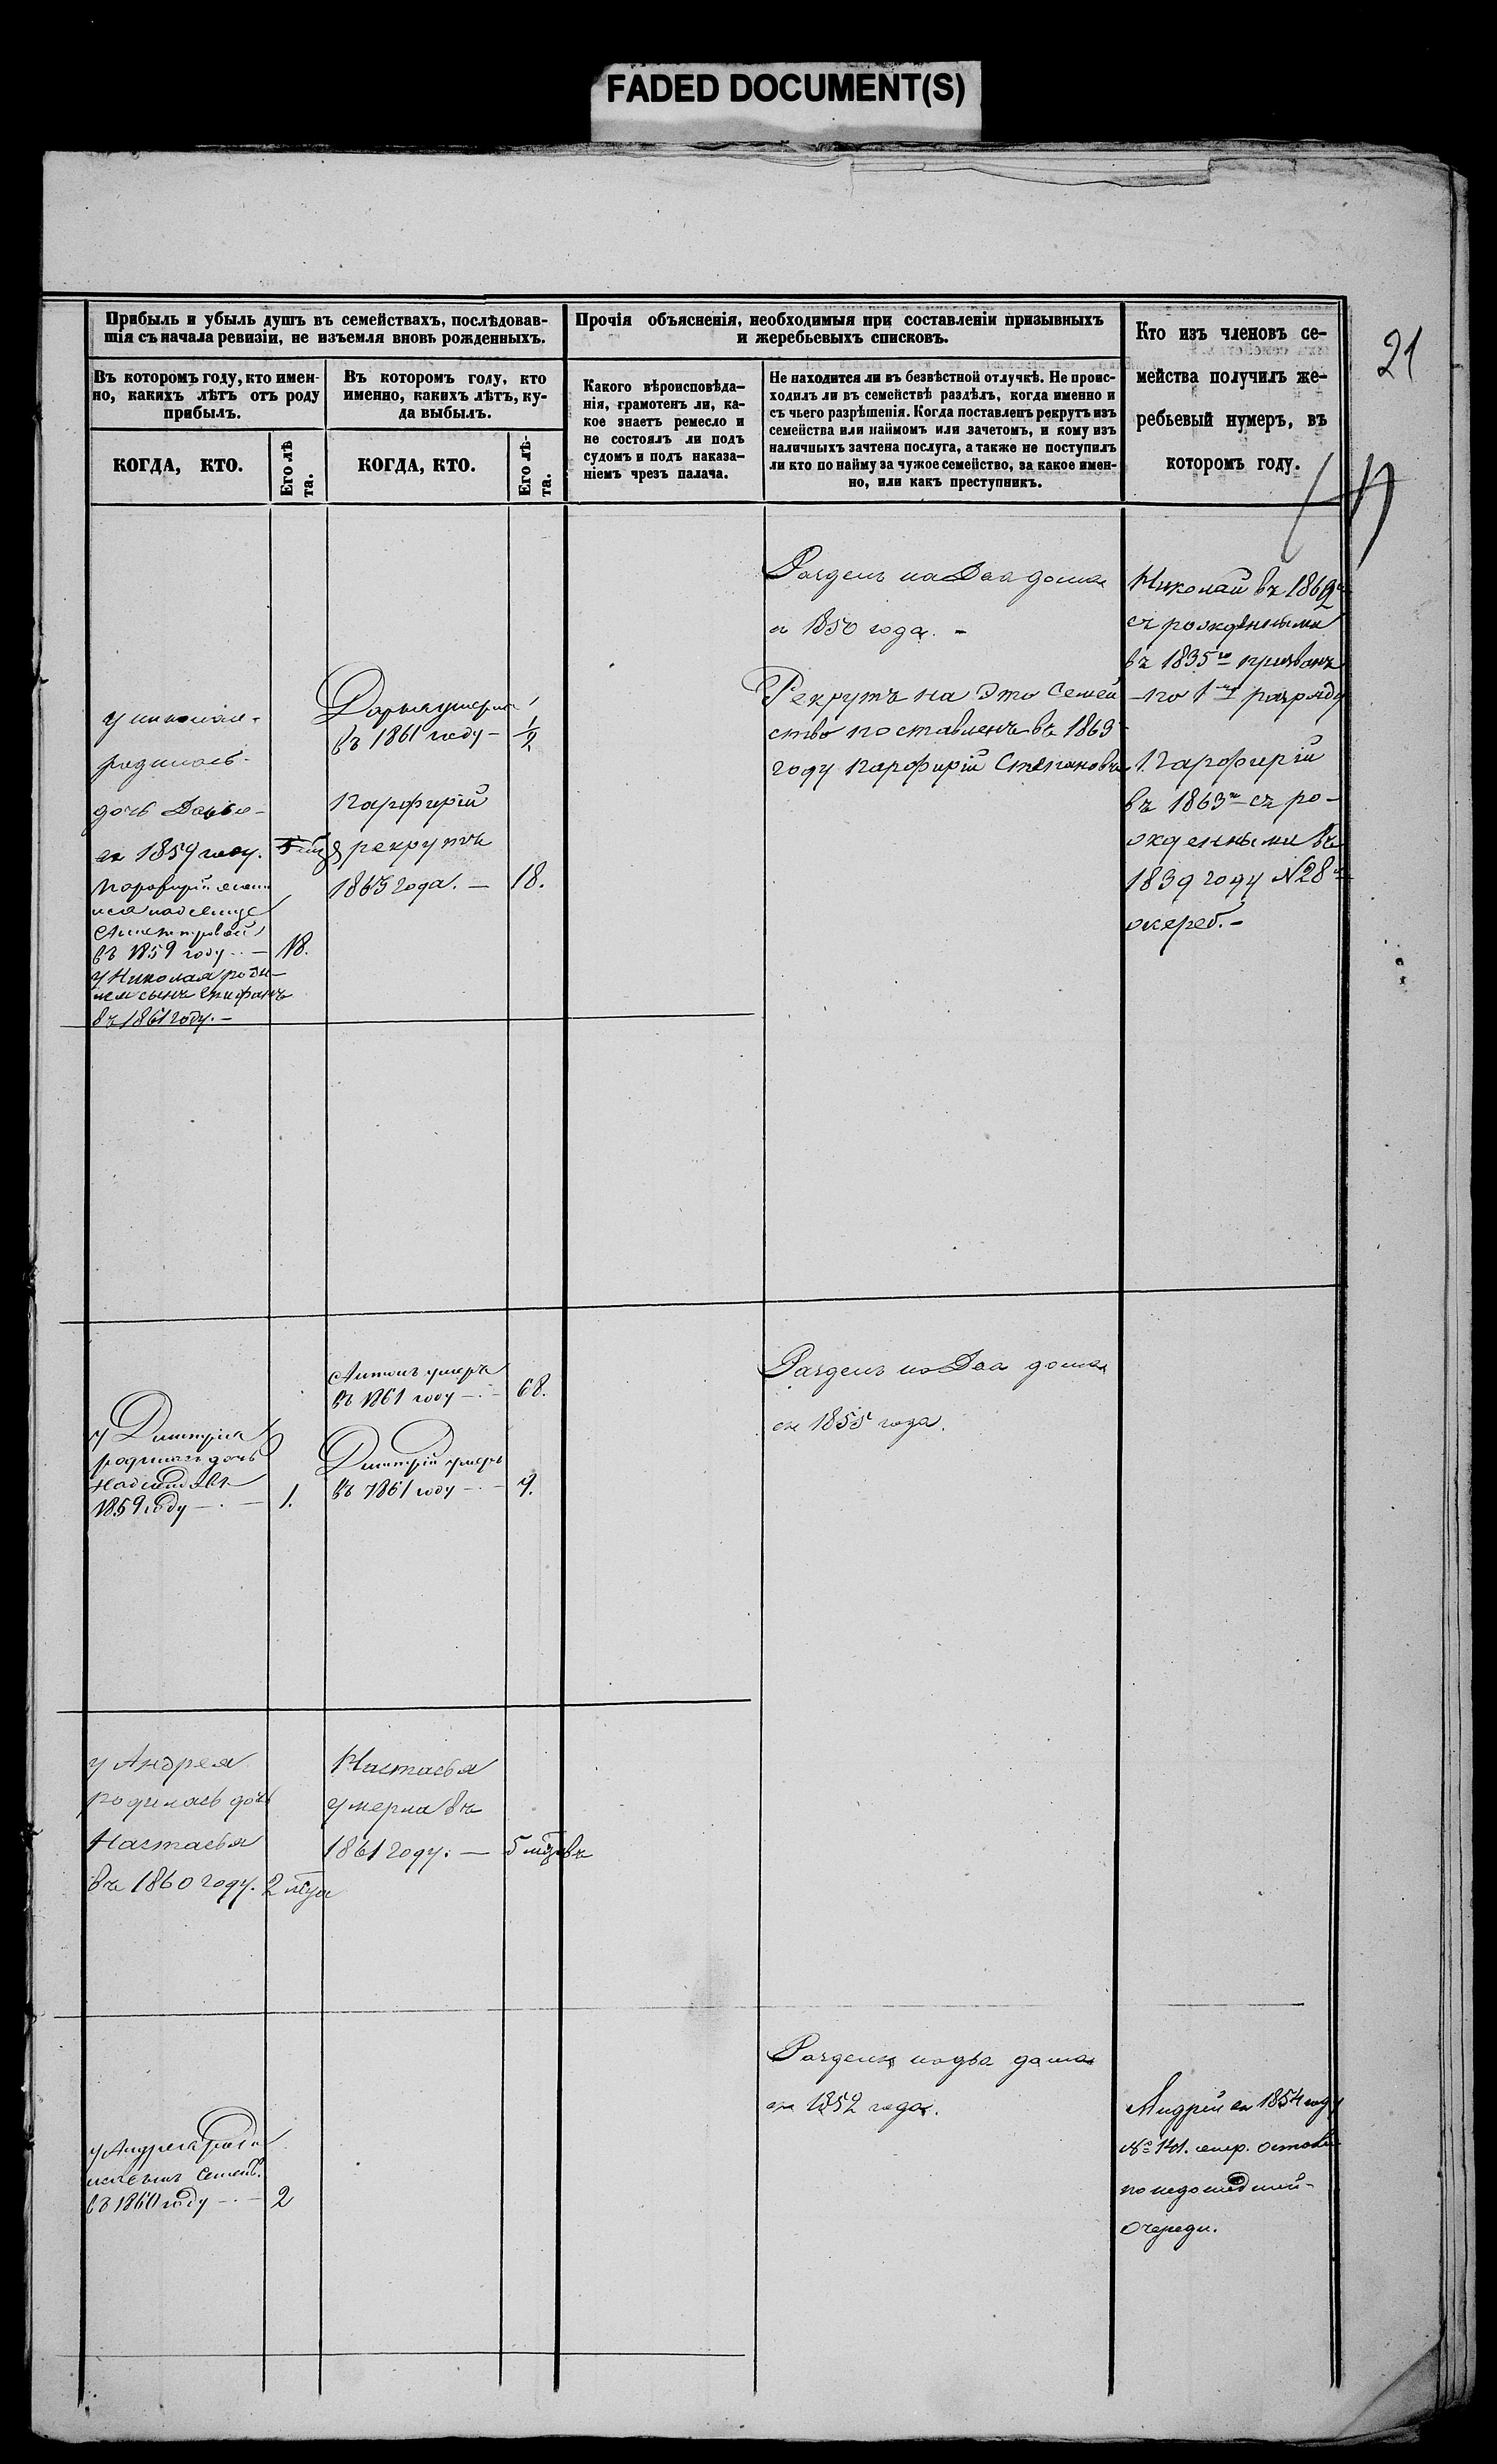 FADED DOCUMENT(S)
21
Прибыль и убыль душъ въ семействахъ, послѣдовав-
шія съ начала ревизіи, не изъемля вновь рожденныхъ.
Въ которомъ году, кто имен-
но, какихъ лѣтъ отъ роду
прибылъ.
КОГДА, КТО.
Его лѣ
та.
Въ которомъ году, кто
именно, какихъ лѣтъ, ку-
да выбылъ.
КОГДА, КТО.
Его лѣ-
та.
Прочія объясненія, необходимыя при составленіи призывныхъ
и жеребьевыхъ списковъ.
Какого вѣроисповѣда-
нія, грамотенъ ли, ка-
кое знаетъ ремесло и
не состоялъ ли подъ
судомъ и подъ наказа-
ніемъ чрезъ палача.
Не находится ли въ безвѣстной отлучкѣ. Не проис-
ходилъ ли въ семействѣ раздѣлъ, когда именно и
съ чьего разрѣшенія. Когда поставленъ рекрутъ изъ
семейства или наймомъ или зачетомъ, и кому изъ
наличныхъ зачтена послуга, а также не поступилъ
ли кто по найму за чужое семейство, за какое имен-
но, или какъ преступникъ.
Кто изъ членовъ се-
мейства получилъ же-
ребьевый нумеръ, въ
которомъ году.
у николая
родилась
дочь
1859 году.
въ 1859 году 18.
у Николая роди-
лся сынъ
въ 1861 году.
Дарья умерла
въ 1861 году 1/2
Парфирій
рекрутъ
1863 года. 18.
Разделъ на два дома
1850 года.
Рекрутъ на это Семей
ство поставленъ въ 1863
году Парфирій Степановъ
Николай въ 1862
съ рожденными
въ 1835го призванъ
по 1му разряду
Парфирій
въ 1863 съ ро-
жденными въ
1839 году №28
жереб.
у Дмитрія
родилась дочь
1859 году 1.
Антонъ умеръ
въ 1861 году 68.
Дмитрій умеръ
въ 1861 году
Разделъ на два дома
1855 года.
у Андрея
родилась дочь
Настасья
въ 1860 году. 2
Настасья
умерла въ
1861 году. 5
у Андрея
въ 1860 году 2
Разделъ на два дома
1852 года.
Андрей 1854 году
№
по недошедшей
очереди.